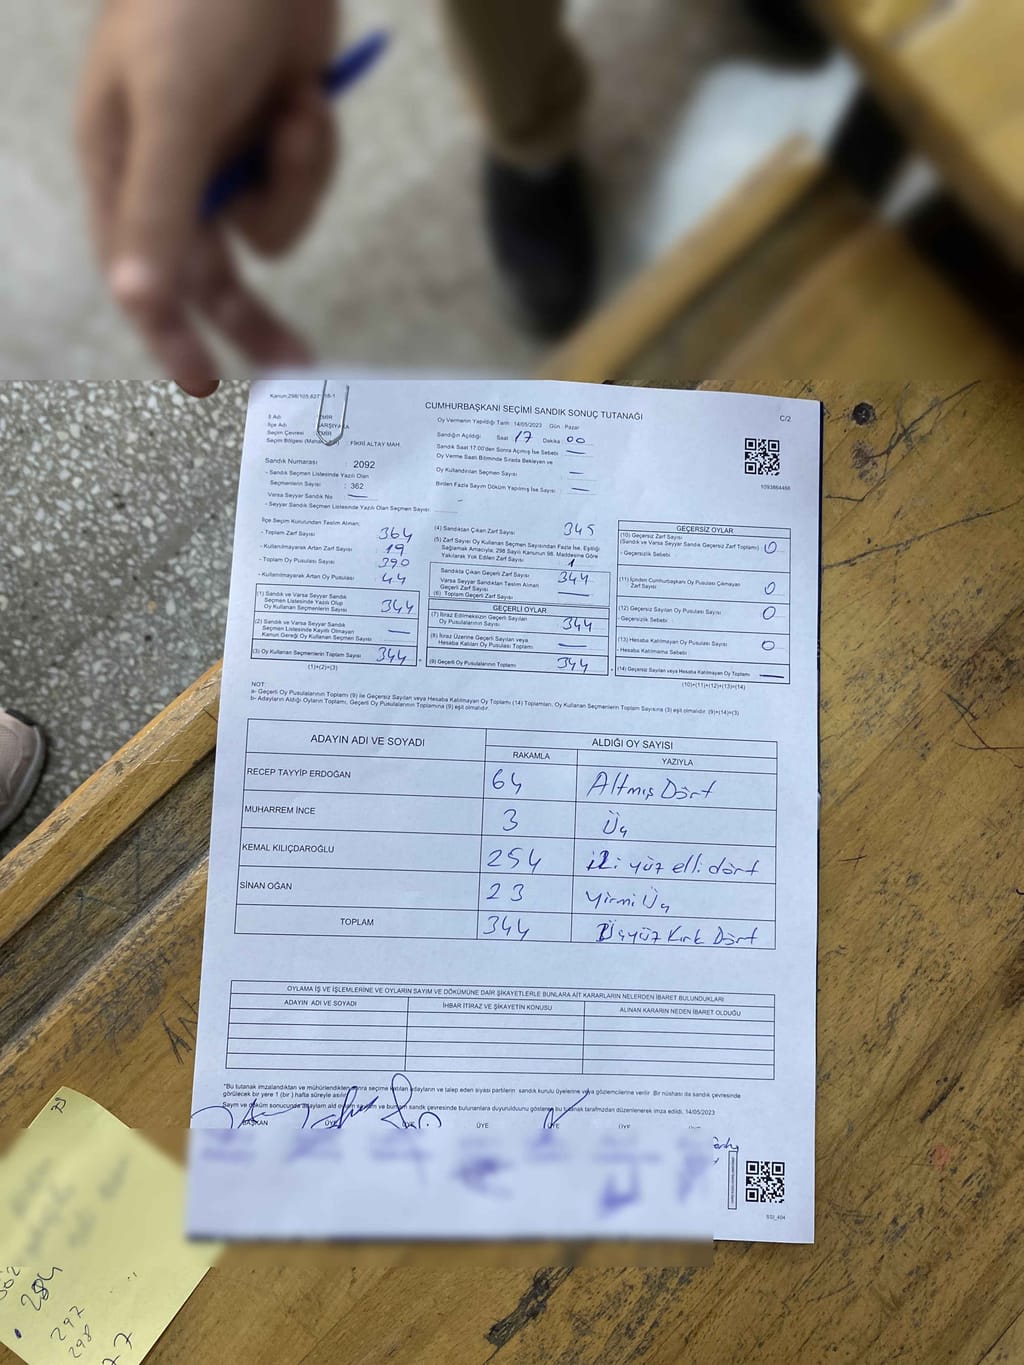 Kanun:298/105,627
CUMHURBAŞKANI SEÇİMİ SANDIK SONUÇ TUTANAĞI
C/2
İl Adı : İZMİR
İlçe Adı KARŞIYAKA
Seçim Çevresi : İZMİR
Seçim Bölgesi FİKRİ ALTAY MAH.
Sandık Numarası 2092
- Sandık Seçmen Listesinde Yazılı Olan
Seçmenlerin Sayısı : 362
Varsa Seyyar Sandık No —
- Seyyar Sandık Seçmen Listesinde Yazılı Olan Seçmen Sayısı:
Oy Vermenin Yapıldığı Tarih : 14/05/2023 Gün : Pazar
Sandığın Açıldığı Saat 17 Dakika 00
Sandık Saat 17.00'den Sonra Açılmış İse Sebebi —
Oy Verme Saati Bitiminde Sırada Bekleyen ve
Oy Kullandırılan Seçmen Sayısı —
Birden Fazla Sayım Döküm Yapılmış İse Sayısı —
1093864466
İlçe Seçim Kurulundan Teslim Alınan:
- Toplam Zarf Sayısı 364
- Kullanılmayarak Artan Zarf Sayısı 19
- Toplam Oy Pusulası Sayısı 390
- Kullanılmayarak Artan Oy Pusulası 44
(1) Sandık ve Varsa Seyyar Sandık
Seçmen Listesinde Yazılı Olup
Oy Kullanan Seçmenlerin Sayısı 344
(2) Sandık ve Varsa Seyyar Sandık
Seçmen Listesinde Kayıtlı Olmayan
Kanun Gereği Oy Kullanan Seçmen Sayısı —
(3) Oy Kullanan Seçmenlerin Toplam Sayısı 344
(1)+(2)=(3)
(4) Sandıktan Çıkan Zarf Sayısı 345
(5) Zarf Sayısı Oy Kullanan Seçmen Sayısından Fazla İse, Eşitliği
Sağlamak Amacıyla, 298 Sayılı Kanunun 98. Maddesine Göre
Yakılarak Yok Edilen Zarf Sayısı 1
Sandıkta Çıkan Geçerli Zarf Sayısı 344
Varsa Seyyar Sandıktan Teslim Alınan
Geçerli Zarf Sayısı —
(6) Toplam Geçerli Zarf Sayısı
GEÇERLİ OYLAR
(7) İtiraz Edilmeksizin Geçerli Sayılan
Oy Pusulalarının Toplamı 344
(8) İtiraz Üzerine Geçerli Sayılan veya
Hesaba Katılan Oy Pusulası Toplamı —
(9) Geçerli Oy Pusulalarının Toplamı 344
GEÇERSİZ OYLAR
(10) Geçersiz Zarf Sayısı
(Sandık ve Varsa Seyyar Sandık Geçersiz Zarf Toplamı) 0
- Geçersizlik Sebebi
(11) İçinden Cumhurbaşkanı Oy Pusulası Çıkmayan
Zarf Sayısı 0
(12) Geçersiz Sayılan Oy Pusulası Sayısı 0
- Geçersizlik Sebebi
(13) Hesaba Katılmayan Oy Pusulası Sayısı 0
- Hesaba Katılmama Sebebi
(14) Geçersiz Sayılan veya Hesaba Katılmayan Oy Toplamı —
(10)+(11)+(12)+(13)=(14)
NOT:
a- Geçerli Oy Pusulalarının Toplamı (9) ile Geçersiz Sayılan veya Hesaba Katılmayan Oy Toplamı (14) Toplamları, Oy Kullanan Seçmenlerin Toplam Sayısına (3) eşit olmalıdır. (9)+(14)=(3)
b- Adayların Aldığı Oyların Toplamı, Geçerli Oy Pusulalarının Toplamına (9) eşit olmalıdır.
ADAYIN ADI VE SOYADI ALDIĞI OY SAYISI
RAKAMLA YAZIYLA
RECEP TAYYİP ERDOĞAN 64 Altmış Dört
MUHARREM İNCE 3 Üç
KEMAL KILIÇDAROĞLU 254 iki yüz elli dört
SİNAN OĞAN 23 Yirmi Üç
TOPLAM 344 Üçyüz Kırk Dört
OYLAMA İŞ VE İŞLEMLERİNE VE OYLARIN SAYIM VE DÖKÜMÜNE DAİR ŞİKAYETLERLE BUNLARA AİT KARARLARIN NELERDEN İBARET BULUNDUKLARI
ADAYIN ADI VE SOYADI İHBAR İTİRAZ VE ŞİKAYETİN KONUSU ALINAN KARARIN NEDEN İBARET OLDUĞU
"Bu tutanak imzalandıktan ve mühürlendikten sonra seçime katılan adayların ve talep eden siyasi partilerin sandık kurulu üyelerine veya gözlemcilerine verilir. Bir nüshası da sandık çevresinde
görülecek bir yere 1 (bir) hafta süreyle asılır."
Sayım ve döküm sonucunda adayların
ve bunun sandık çevresinde bulunanlara duyurulduğunu gösteren bu tutanak tarafımızdan düzenlenerek imza edildi. 14/05/2023
BAŞKAN ÜYE ÜYE ÜYE ÜYE ÜYE
284
297
298